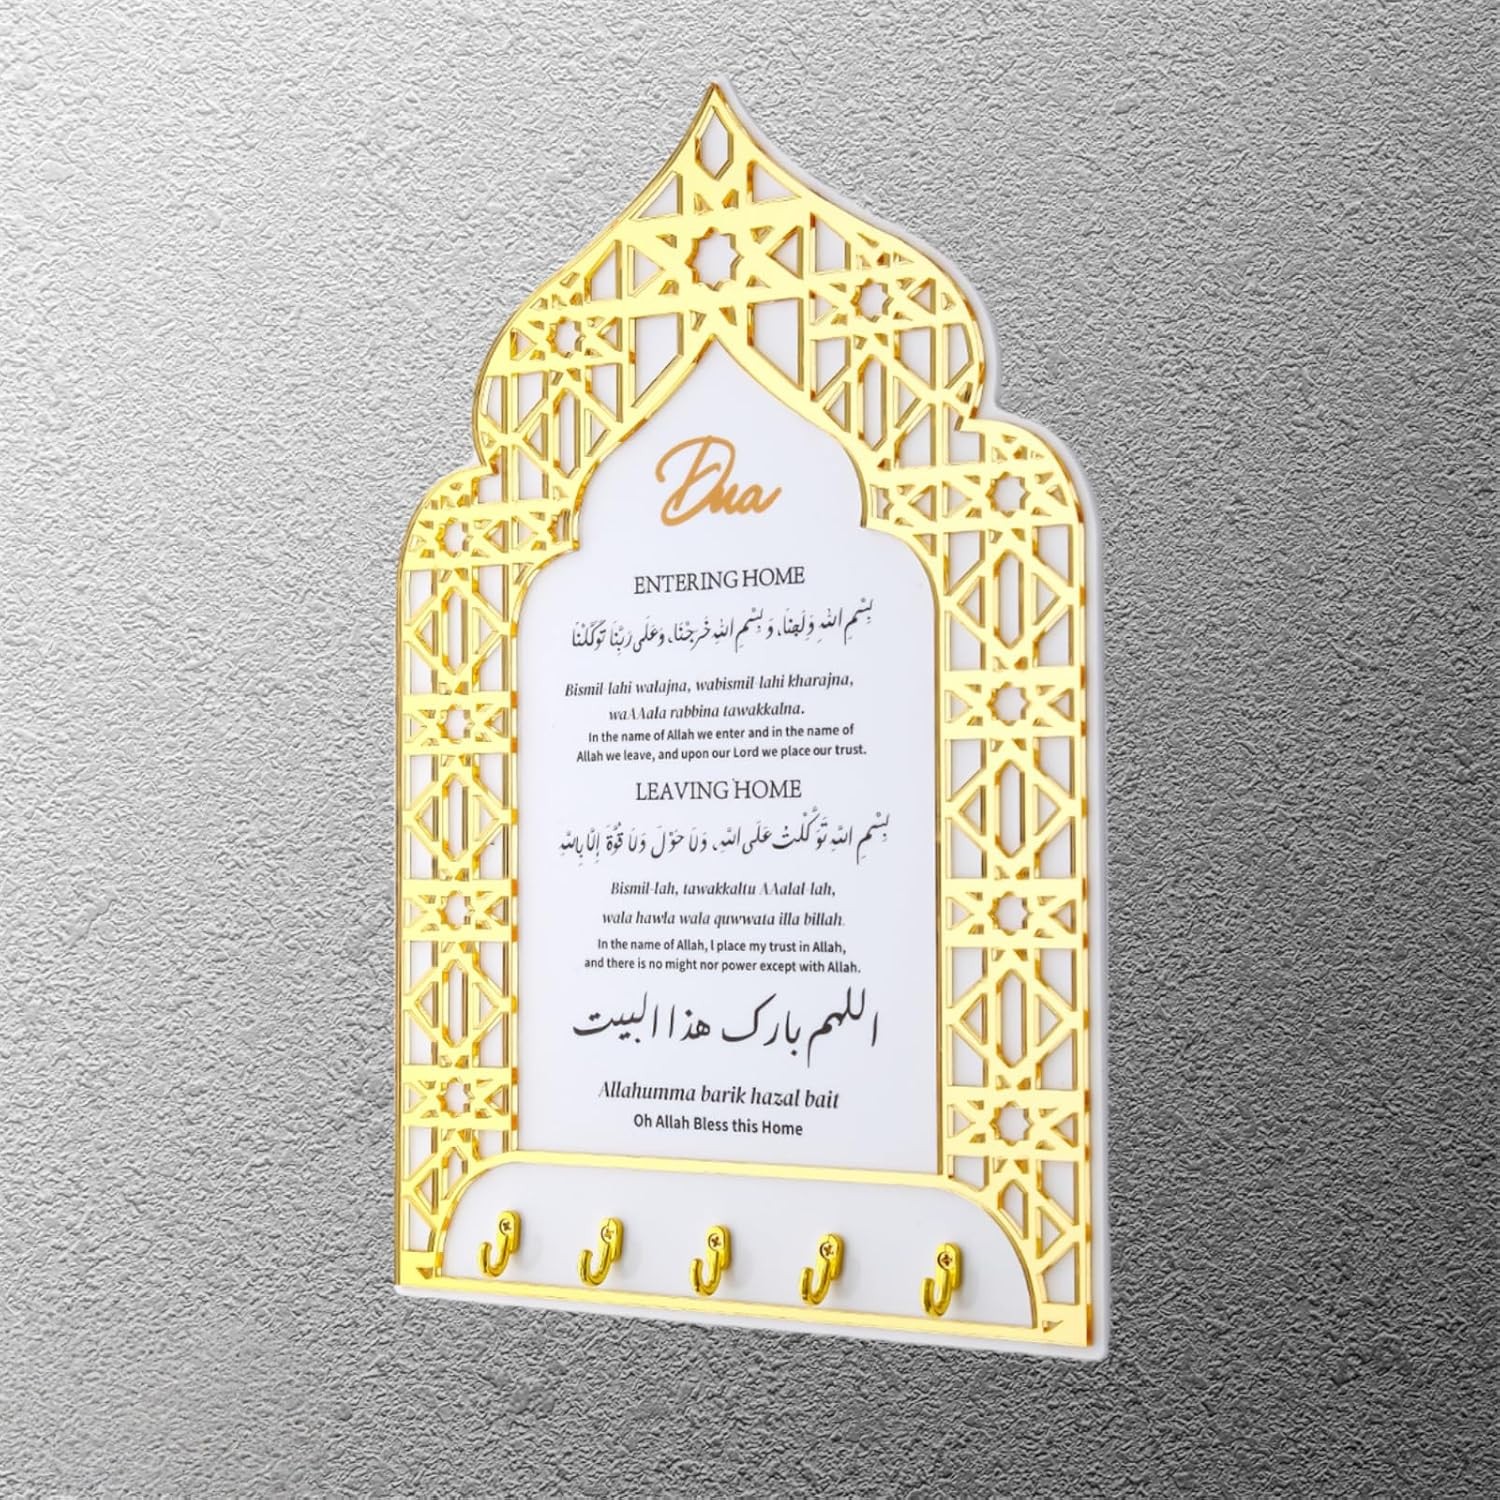 Dua
ENTERING HOME
بِسْمِ اللهِ وَلَجْنَا، وَ بِسْمِ اللهِ خَرَجْنَا، وَعَلَى رَبِّنَا تَوَكَّلْنَا
Bismil-lahi walajna, wabismil-lahi kharajna,
waAAala rabbina tawakkalna.
In the name of Allah we enter and in the name of
Allah we leave, and upon our Lord we place our trust.
LEAVING HOME
بِسْمِ اللَّهِ تَوَكَّلْتُ عَلَى اللَّهِ، وَلَا حَوْلَ وَلَا قُوَّةَ إِلَّا بِاللَّهِ
Bismil-lah, tawakkaltu AAalal-lah,
wala hawla wala quwwata illa billah.
In the name of Allah, I place my trust in Allah,
and there is no might nor power except with Allah.
اللهم بارك هذا البيت
Allahumma barik hazal bait
Oh Allah Bless this Home